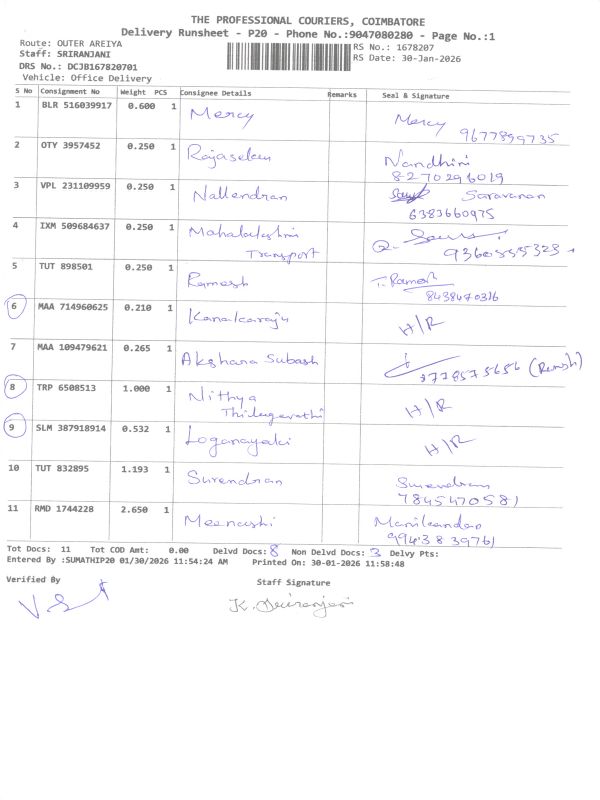 THE PROFESSIONAL COURIERS, COIMBATORE
Delivery Runsheet - P20 - Phone No.:9047080280 - Page No.:1
Route: OUTER AREIYA
RS No.: 1678207
Staff: SRIRANJANI
RS Date: 30-Jan-2026
DRS No.: DCJB167820701
Vehicle: Office Delivery
S No Consignment No Weight PCS Consignee Details Remarks Seal & Signature
1 BLR 516039917 0.600 1 Mercy Mercy 9677899735
2 OTY 3957452 0.250 1 Rajaselvu Nandhini
8270296019
3 VPL 231109959 0.250 1 Nallendran Saravanan
6383660975
4 IXM 509684637 0.250 1 Mahalakshmi
Transport 9360555323
5 TUT 898501 0.250 1 Ramesh T. Ramesh
8438470316
6 MAA 714960625 0.210 1 Kanakaraju H/R
7 MAA 109479621 0.265 1 Akshana Subash
7778575656
8 TRP 6508513 1.000 1 Nithya
Thilagavathi H/R
9 SLM 387918914 0.532 1 Loganayaki H/R
10 TUT 832895 1.193 1 Surendran Surendran
7845470581
11 RMD 1744228 2.650 1 Meenashi Manikandan
9943839761
Tot Docs: 11 Tot COD Amt: 0.00 Delvd Docs: 8 Non Delvd Docs: 3 Delvy Pts:
Entered By :SUMATHIP20 01/30/2026 11:54:24 AM Printed On: 30-01-2026 11:58:48
Verified By Staff Signature
K. Sriranjani